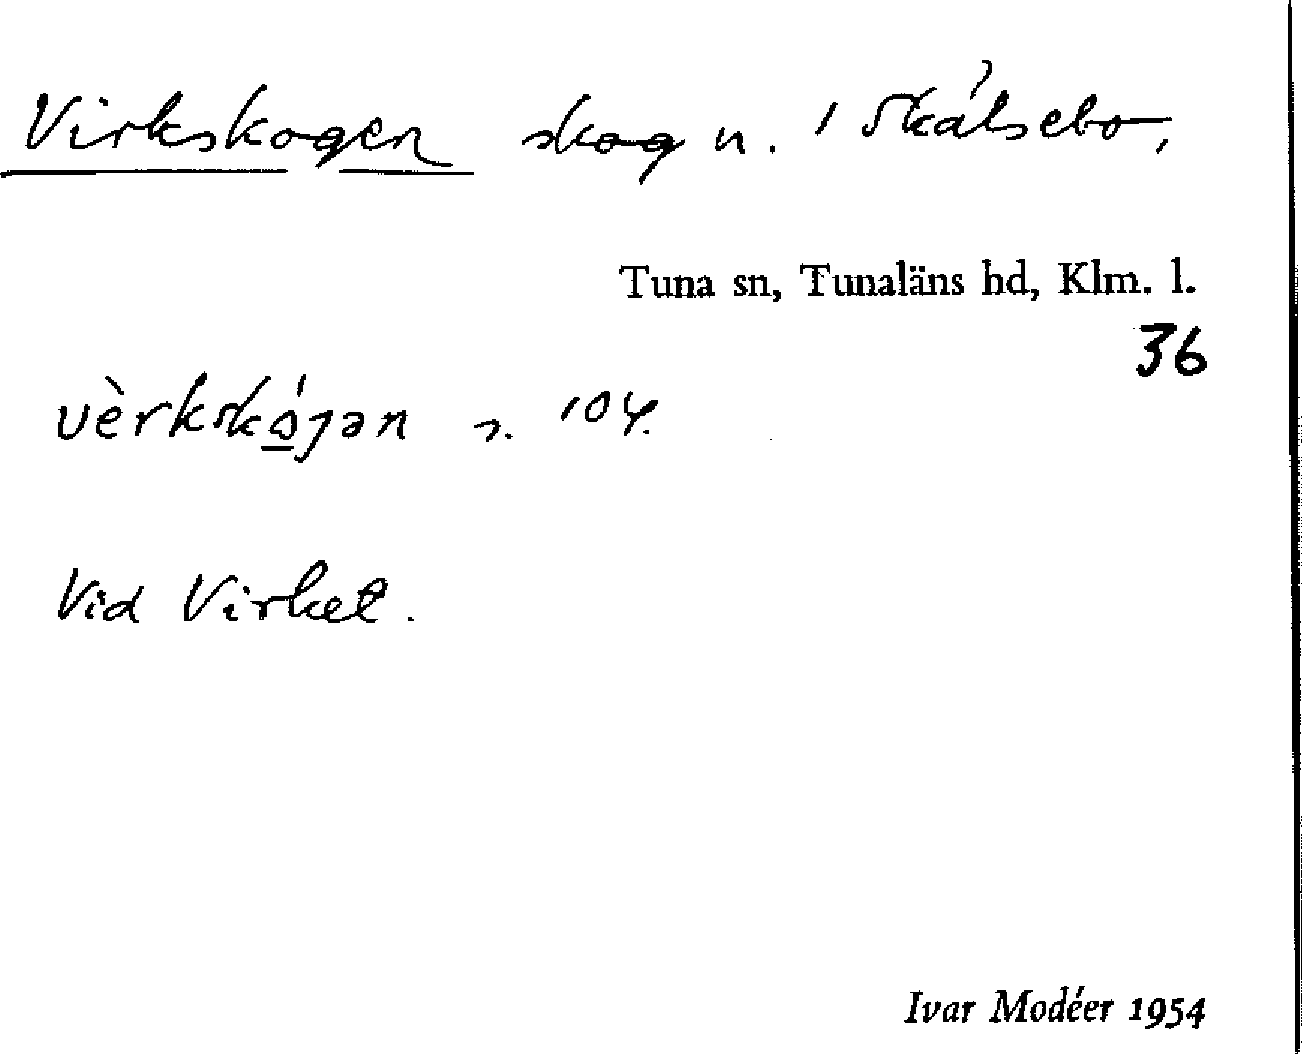 Virkskogen skog n. 1 Skålsebo,
Tuna sn, Tunaläns hd, Klm. l.
36
vèrkskójən 104.
Vid Virket.
Ivar Modéer 1954